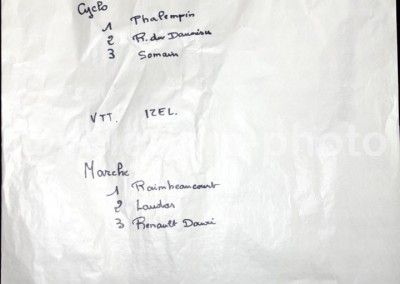 Cyclo
1 Phalempin
2 R. du Douaisis
3 Somain
VTT. IZEL.
Marche
1 Raimbeaucourt
2 Landas
3 Renault Douai